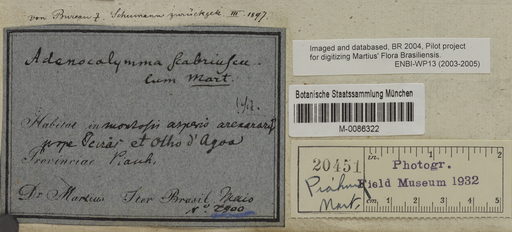 von Bureau & Schumann zurückgek. III. 1897.
Adenocalymma scabriuscu-
lum Mart.
Habitat in montosis asperis
prope Oeiras et Olho d'Agoa
Provinciae Piauh.
Dr. Martius Iter Brasil. Maio
Imaged and databased, BR 2004, Pilot project
for digitizing Martius' Flora Brasiliensis.
ENBI-WP13 (2003-2005)
Botanische Staatssammlung München
M-0086322
in. 1 2
20451 Photogr.
Field Museum 1932
Mart.
cm. 1 2 3 4 5